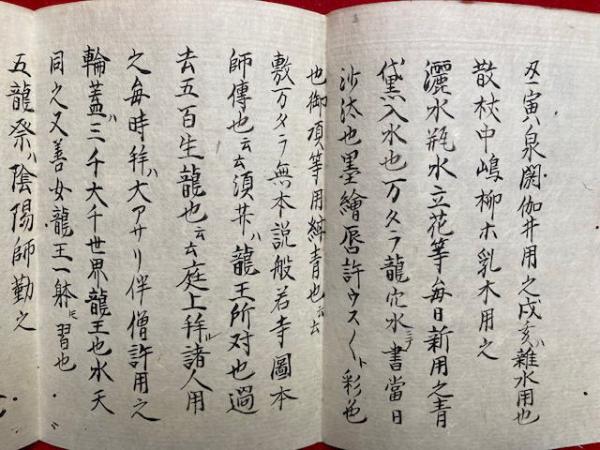 丑寅ハ泉閼伽井用之戌亥ハ雜水用也
散杖中嶋柳ホ乳木用之
灑水瓶水立花等毎日新用之青
黛入水也万タラ龍穴水ニテ書當日
沙汰也墨繪唇許ウス〱ト彩色
也御頂等用紺青也云云
敷万タラ無本説般若寺圖本
師傳也云云須弥ハ龍王所对也過
去五百生龍也云云庭上拜諸人用
之毎時拜ハ大アサリ伴僧許用之
輪蓋ハ三千大千世界龍王也水天
同之又善女龍王一躰ト習也
五龍祭ハ陰陽師勤之